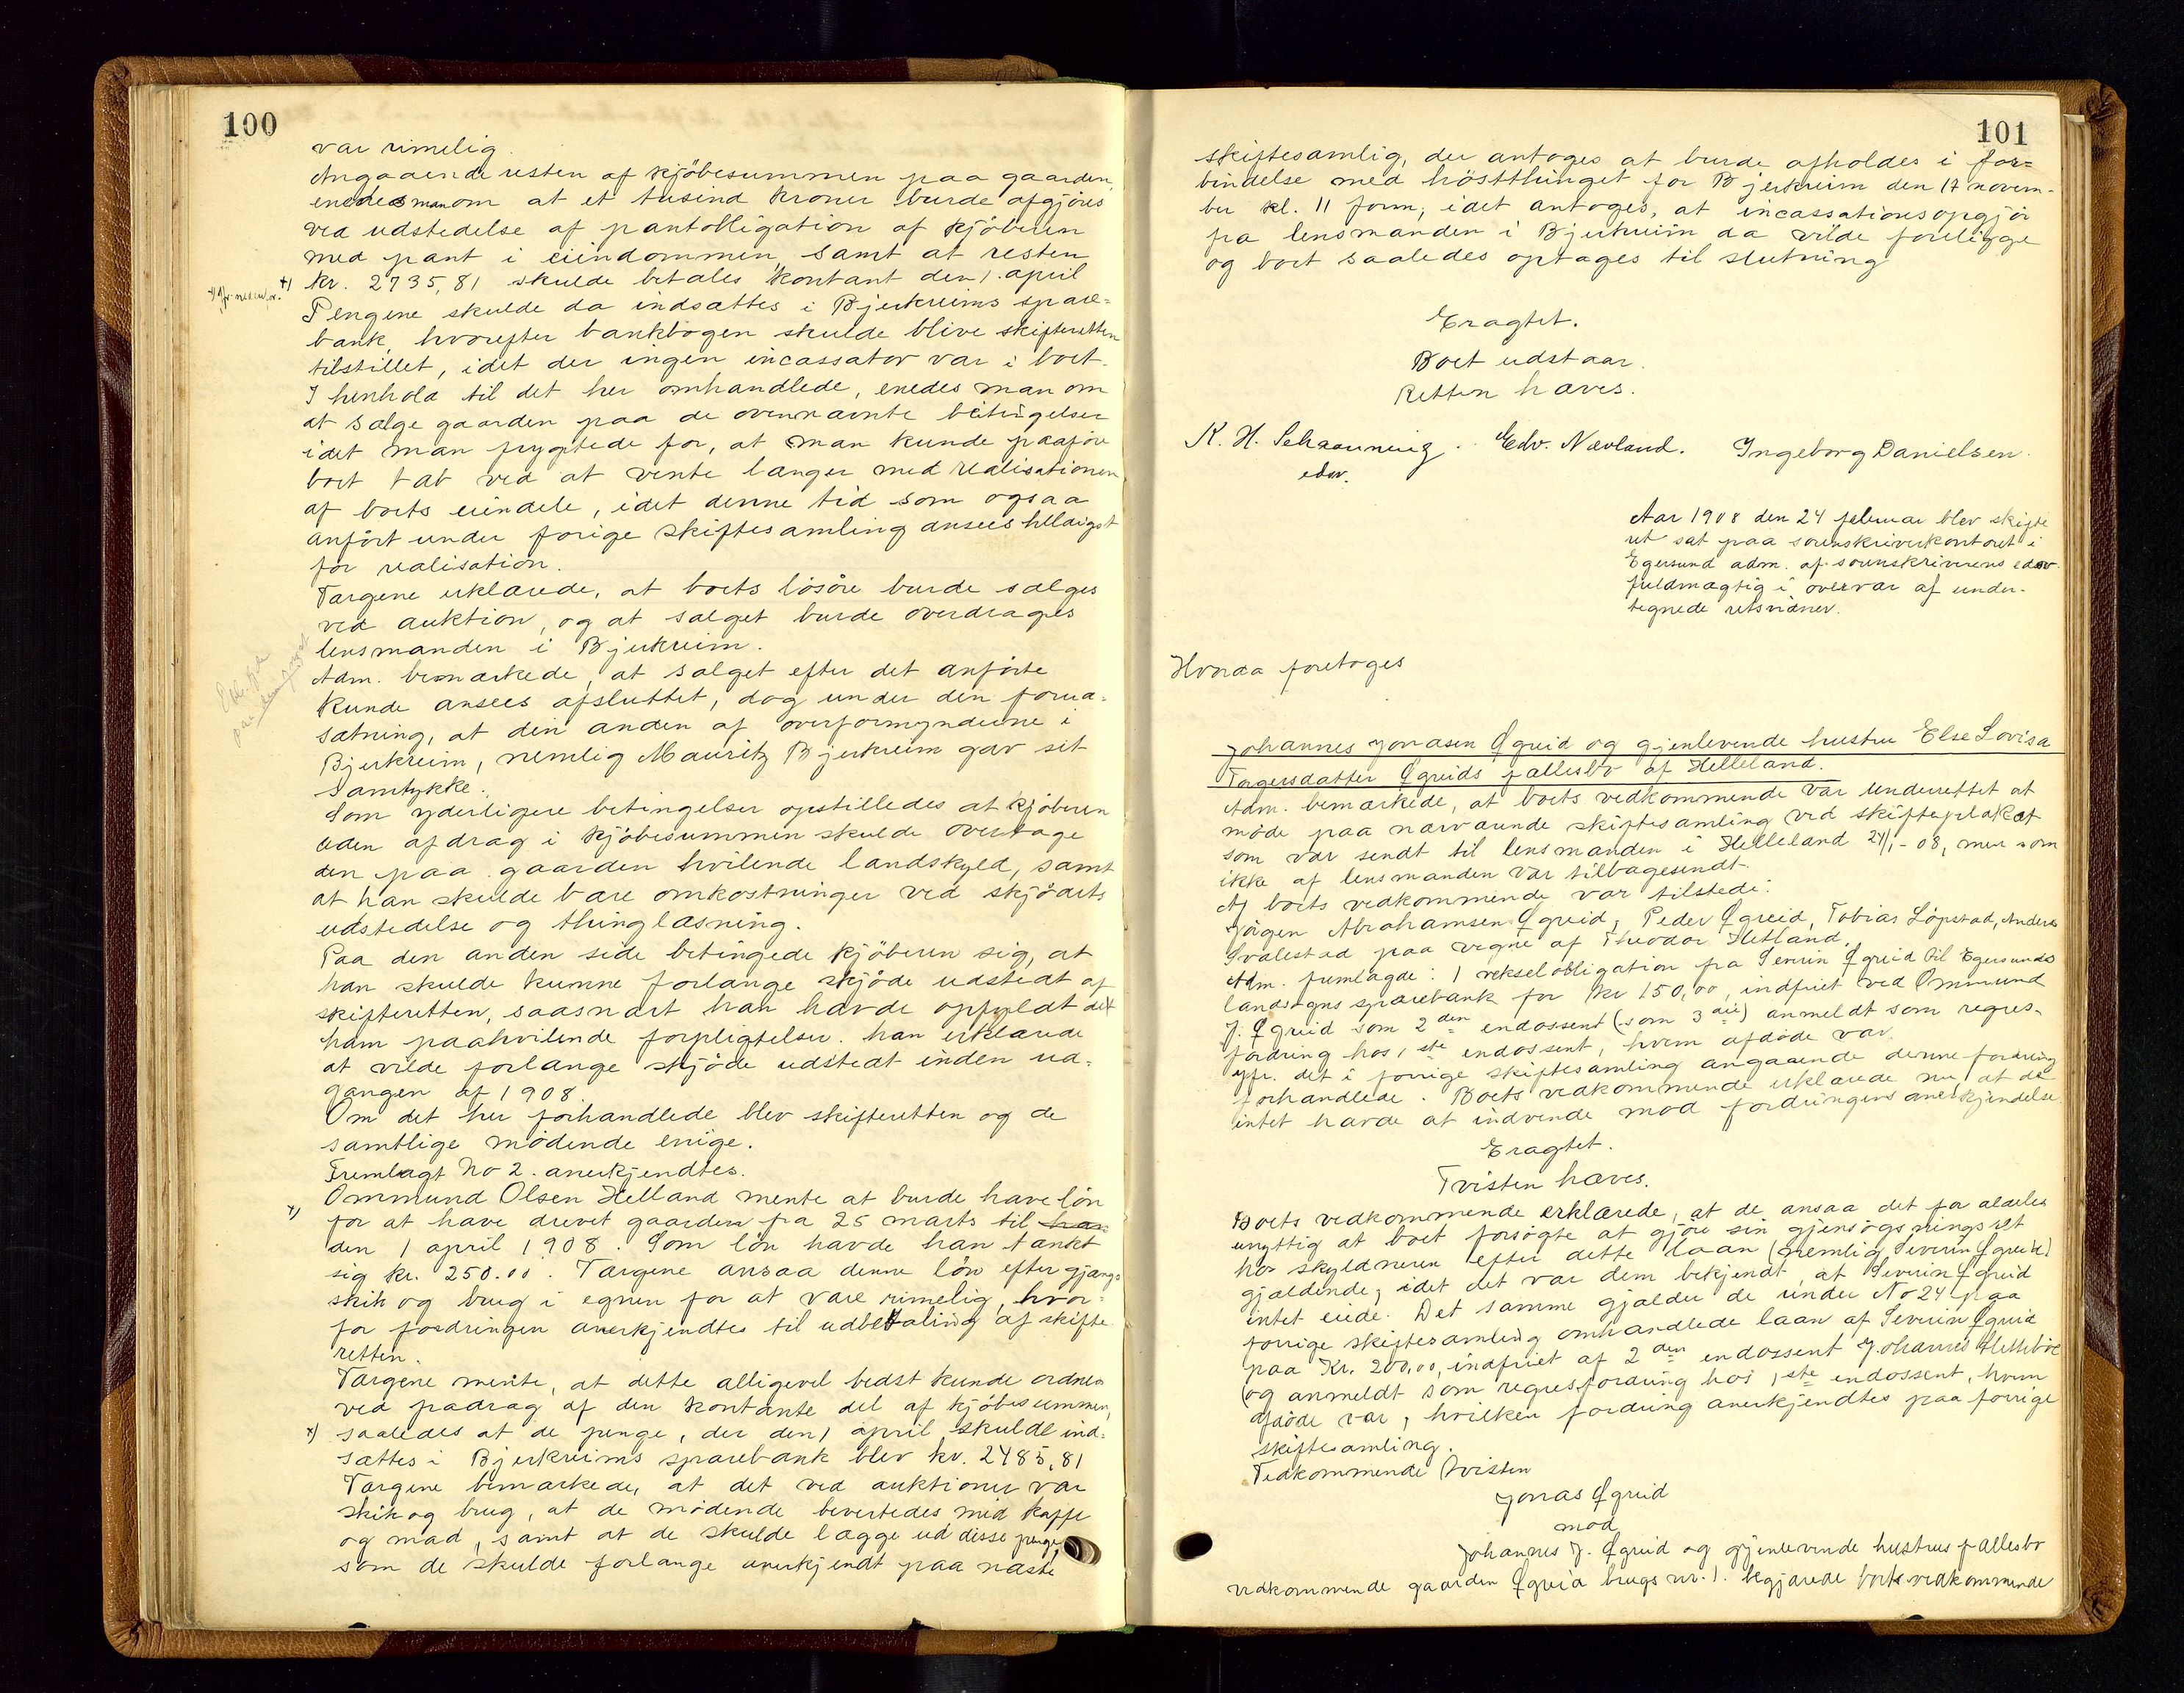 100
var rimelig.
Angaaende resten af kjöbesummen paa gaarden,
enedes man om at et tusind kroner burde afgjöres
ved udstedelse af pantobligation af kjöberen
med pant i eiendommen, samt at resten
x) kr. 2735,81 skulde betales kontant den 1. april
Pengene skulde da indsættes i Bjerkreims spare-
bank, hvorefter bankbogen skulde blive skifteretten
tilstillet, idet der ingen incassator var i boet.
I henhold til det her omhandlede, enedes man om
at sælge gaarden paa de ovennævnte betingelser
idet man frygtede for, at man kunde paaföre
boet tab ved at vente længer med realisationen
af boets eiendele, idet denne tid som ogsaa
anfört under forige skiftesamling ansees heldigst
for realisation.
Værgene erklærede, at boets lösöre burde sælges
ved auktion, og at salget burde overdrages
lensmanden i Bjerkreim.
Adm. bemærkede, at salget efter det anförte
kunde ansees afsluttet, dog under den forud-
sætning, at den anden af overformynderne i
Bjerkreim, nemlig Mauritz Bjerkreim gav sit
samtykke.
Som yderligere betingelser opstilledes at kjöberen
uden afdrag i kjöbesummen skulde overtage
den paa gaarden hvilende landskyld, samt
at han skulde bære omkostninger ved skjödets
udstedelse og thinglæsning.
Paa den anden side betingede kjöberen sig, at
han skulde kunne forlange skjöde udstedt af
skifteretten, saasnart han havde opfyldt det
ham paahvilende forpligtelser. han erklærede
at vilde forlange skjöde udstedt inden ud-
gangen af 1908.
Om det her forhandlede blev skifteretten og de
samtlige mödende enige.
Fremlagt No 2. anerkjendtes.
x) Ommund Olsen Helland mente at burde have lön
for at have drevet gaarden fra 25 marts til han
den 1 april 1908. Som lön havde han tænkt
sig kr. 250.00. Værgene ansaa denne lön efter gjængs
skik og brug i egnen for at være rimelig, hvor-
for fordringen anerkjendtes til udbetaling af skifte-
retten.
Værgene mente, at dette alligevel bedst kunde ordnes
ved fradrag af den kontante del af kjöbesummen,
x) saaledes at de penge, der den 1 april skulde ind-
sættes i Bjerkreims sparebank blev kr. 2485,81
Værgene bemærkede, at det ved auktioner var
skik og brug, at de mödende bevertedes med kaffe
og mad, samt at de skulde lægge ud disse penge
som de skulde forlange anerkjendt paa næste
101
skiftesamlig, der antoges at burde afholdes i for-
bindelse med hösttinget for Bjerkreim den 17 novem-
ber kl. 11 form; idet antoges, at incassationsopgjör
fra lensmanden i Bjerkreim da vilde foreligge
og boet saaledes optages til slutning
Eragtet.
Boet udstaar.
Retten hæves.
K. H. Schaanning. Edv. Nævland. Ingeborg Danielsen.
edsv.
Aar 1908 den 24 februar blev skifte
ret sat paa sorenskriverkontoret i
Egersund adm. af sorenskriverens edsv.
fuldmægtig i overvær af under-
tegnede retsvidner.
Hvorda foretoges
Johannes Jonasen Øgreid og gjenlevende hustru Else Lovisa
Torgersdatter Øgreids fællesbo af Helleland.
Adm. bemærkede, at boets vedkommende var underrettet at
möde paa nærværende skiftesamling ved skifteplakat
som var sendt til lensmanden i Helleland 24/1-08, men som
ikke af lensmanden var tilbagesendt.
Af boets vedkommende var tilstede:
Jörgen Abrahamsen Øgreid, Peder Øgreid, Tobias Löpstad, Anders
Svalestad paa vegne af Theodor Hetland.
Adm. fremlagde: 1 vekselobligation fra Severin Øgreid til Egersunds
landsogns sparebank for kr 150,00, indfriet ved Ommund
J. Øgreid som 2den endossent (som 3die) anmeldt som regres-
fordring hos 1ste endossent, hvem afdöde var
jfr. det i forrige skiftesamling angaaende denne fordring
forhandlede. Boets vedkommende erklærede nu, at de
intet havde at indvende mod fordringens anerkjendelse
Eragtet.
Tvisten hæves.
Boets vedkommende erklærede, at de ansaa det for aldeles
unyttig at boet forsögte at gjöre sin gjensögningsret
hos skyldneren efter dette laan (nemlig Severin Øgreid)
gjældende; idet det var dem bekjendt, at Severin Øgreid
intet eiede. Det samme gjælder de under No 24 paa
forrige skiftesamling omhandlede laan af Severin Øgreid
paa Kr. 200,00, indfriet af 2den endossent Johannes Helleböe
(og anmeldt som regresfordring hos 1ste endossent, hvem
afdöde var, hvilken fordring anerkjendtes paa forrige
skiftesamling.
Vedkommende tvisten
Jonas Øgreid
mod
Johannes J. Øgreid og gjenlevende hustrus fællesbo
vedkommende gaarden Øgreid brugs nr. 1. begjærede boets vedkommende